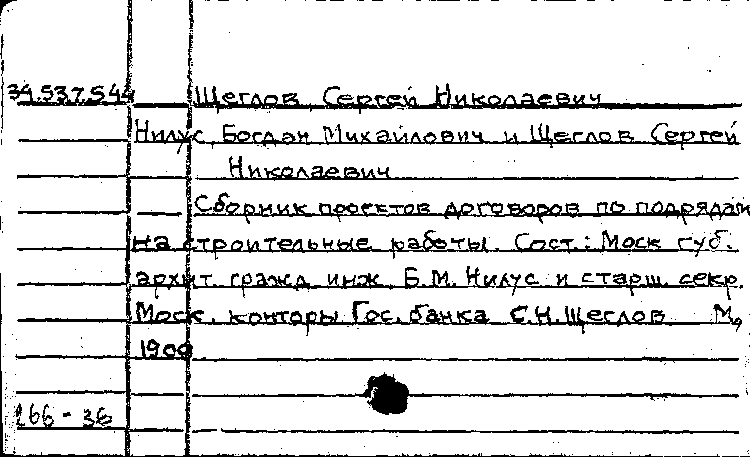 34.537.544 Щеглов, Сергей Николаевич
Нилус, Богдан Михайлович и Щеглов Сергей
Николаевич
Сборник проектов договоров по подрядам
на строительные работы. Сост.: Моск губ.
архит. гражд инж. Б.М. Нилус и старш. секр.
Моск. конторы Гос. банка С.Н. Щеглов М.,
266-36